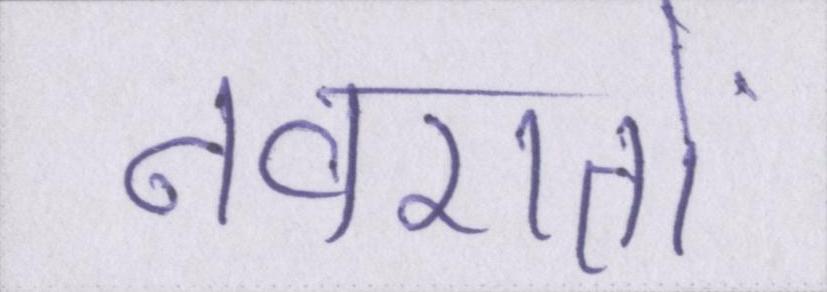 नवरातों